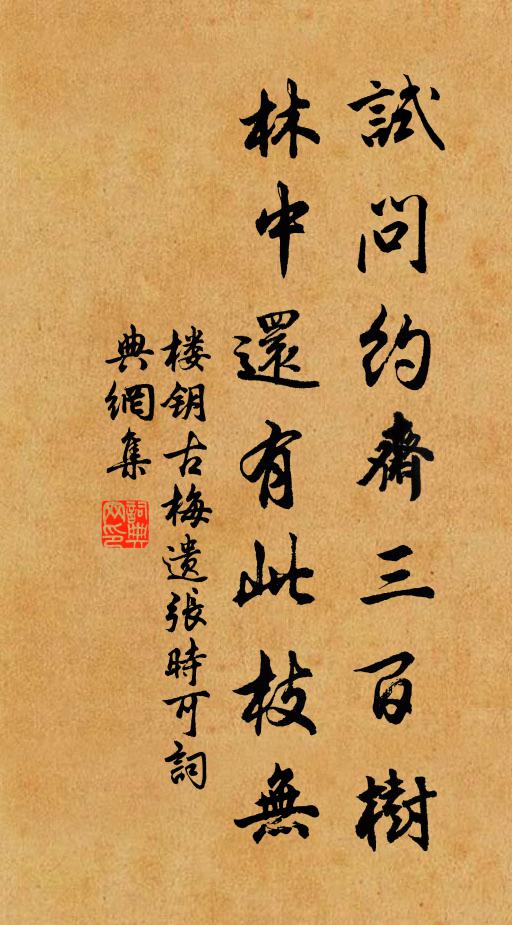 試問約齋三百樹
林中還有此枝無
楼钥古梅遗張時可詞
典網集
詞典網印